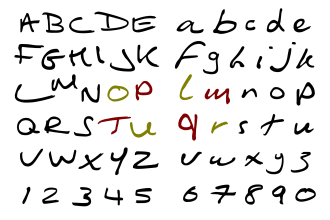 ABCDE abcde
FGHIJK fghijk
LMNOP lmnop
QRSTU qrstu
VWXYZ vwxyz
12345 67890